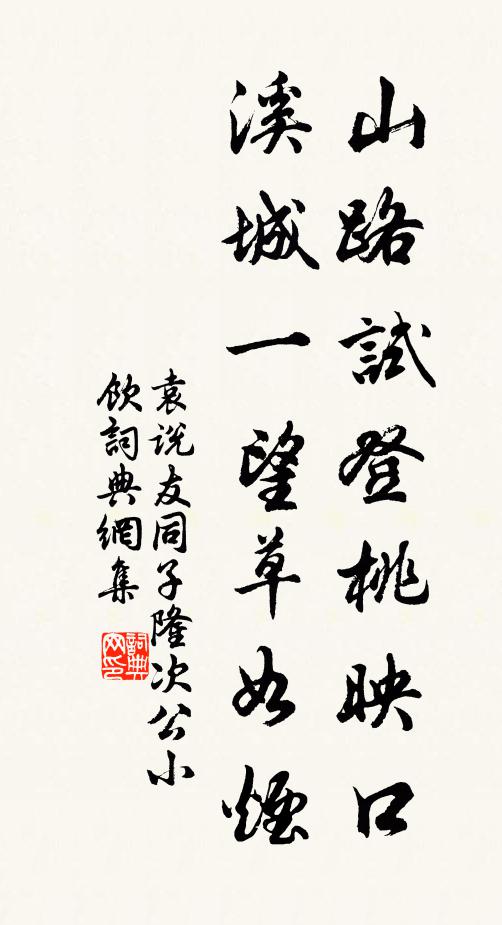 山路試登桃映口
溪城一望草如煙
袁説友同子隆次公小
飲詞典網集
詞典网印